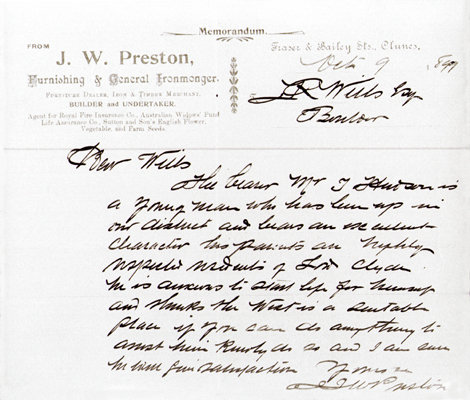 Memorandum.
FROM
J. W. Preston,
Furnishing & General Ironmonger.
FURNITURE DEALER, IRON & TIMBER MERCHANT,
BUILDER and UNDERTAKER.
Agent for Royal Fire Insurance Co., Australian Widows' Fund
Life Assurance Co., Sutton and Son's English Flower,
Vegetable, and Farm Seeds.
Fraser & Bailey Sts., Clunes,
Oct 9 1897
J R Wills Esq
Boulder
Dear Wills
The bearer Mr J Hudson is
a young man who has been up in
our district and bears an excellent
character his parents are highly
respected residents of Lord Clyde
he is anxious to start life for himself
and thinks the West is a suitable
place if you can do anything to
assist him kindly do so and I am sure
he will give satisfaction Yours
J W Preston